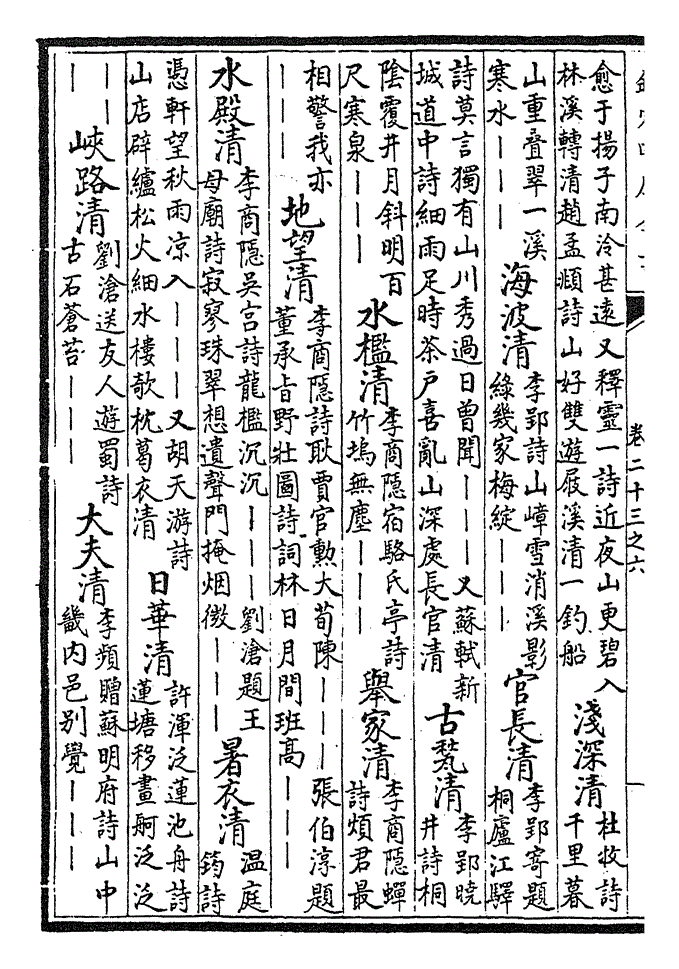 卷二十三之六
愈于揚子南泠甚遠又釋靈一詩近夜山更碧入
林溪轉清趙孟頫詩山好雙遊屐溪清一釣船
淺深清
杜牧詩
千里暮
山重叠翠一溪
寒水｜｜｜
海波清
李郢詩山嶂雪消溪影
綠幾家梅綻｜｜｜
官長清
李郢寄題
桐廬江驛
詩莫言獨有山川秀過日曾聞｜｜｜又蘇軾新
城道中詩細雨足時茶户喜亂山深處長官清
古甃清
李郢曉
井詩桐
陰覆井月斜明百
尺寒泉｜｜｜
水檻清
李商隱宿駱氏亭詩
竹塢無塵｜｜｜
舉家清
李商隱蟬
詩煩君最
相警我亦
｜｜｜
地望清
李商隱詩耿賈官勲大荀陳｜｜｜張伯淳題
董承旨野壯圖詩詞林日月間班髙｜｜｜
水殿清
李商隱吳宫詩龍檻沉沉｜｜｜劉滄題王
母廟詩寂寥珠翠想遺聲門掩烟微｜｜｜
暑衣清
温庭
筠詩
憑軒望秋雨凉入｜｜｜又胡天游詩
山店辟纑松火細水樓欹枕葛衣清
日華清
許渾泛蓮池舟詩
蓮塘移畫舸泛泛
｜｜
｜
峽路清
劉滄送友人遊蜀詩
古石蒼苔｜｜｜
大夫清
李頻贈蘇明府詩山中
畿内邑别覺｜｜｜